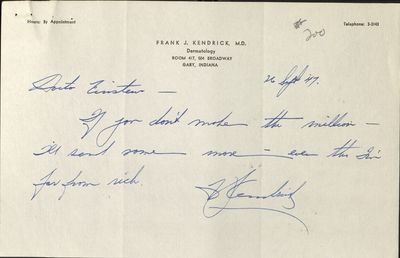 Hours: By Appointment
Telephone: 5-3141
200
FRANK J. KENDRICK, M.D.
Dermatology
ROOM 417, 504 BROADWAY
GARY, INDIANA
Einstein —
26 Sept 47.
If you don't make the million —
I'll send some more — even tho I'm
far from rich.
FJ Kendrick